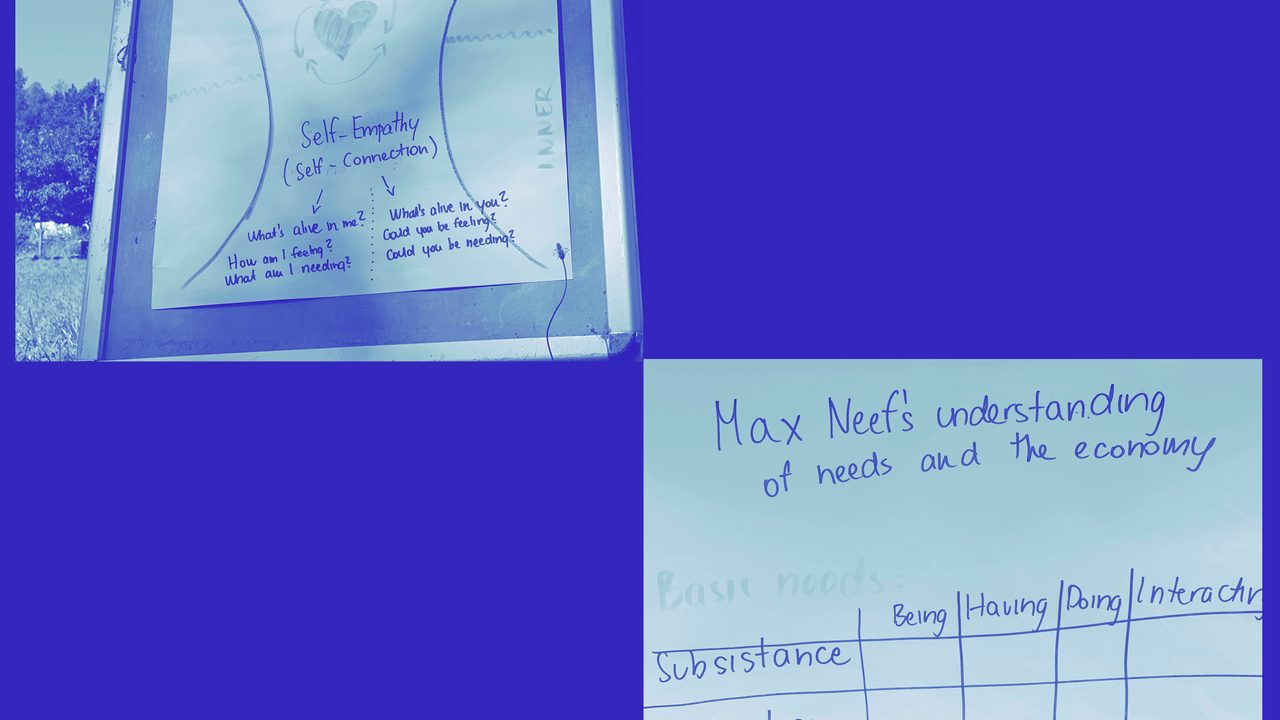 Self-Empathy
(Self-Connection)
What's alive in me?
How am I feelng?
What am I needing?
What's alive in you?
Could you be feeling?
Could you be needing?
INNER
Max Neef's understanding
of needs and the economy
Basic needs:
Being Having Doing Interactin
Subsistance